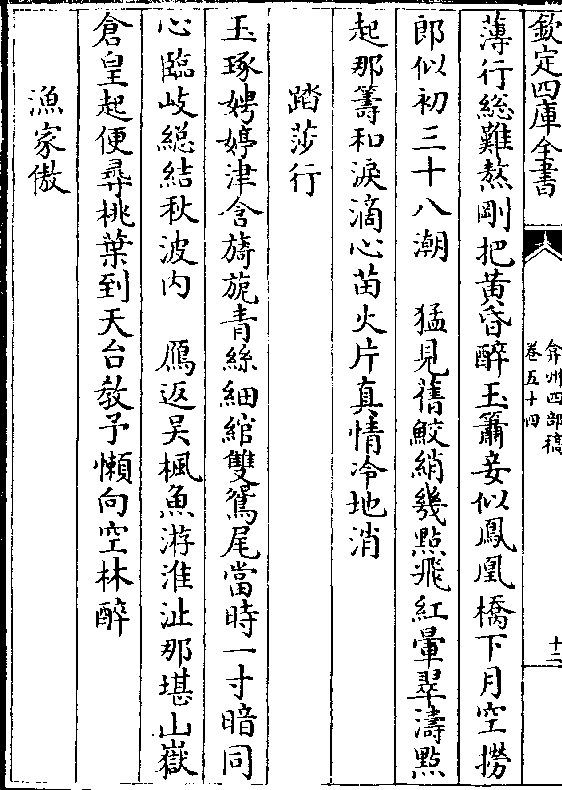 欽定四庫全書
弇州四部稿
卷五十四
十二
薄行總難熬剛把黄昏醉玉簫妾似鳳凰橋下月空撈
郎似初三十八潮　猛見舊鮫綃幾點飛紅暈翠濤點
起那籌和淚滴心苗火片真情冷地消
踏莎行
玉琢娉婷津含旖旎青絲細綰雙鴛尾當時一寸暗同
心臨岐總結秋波内　鴈返吴楓魚游淮沚那堪山嶽
倉皇起便尋桃葉到天台教予懶向空林醉
漁家傲